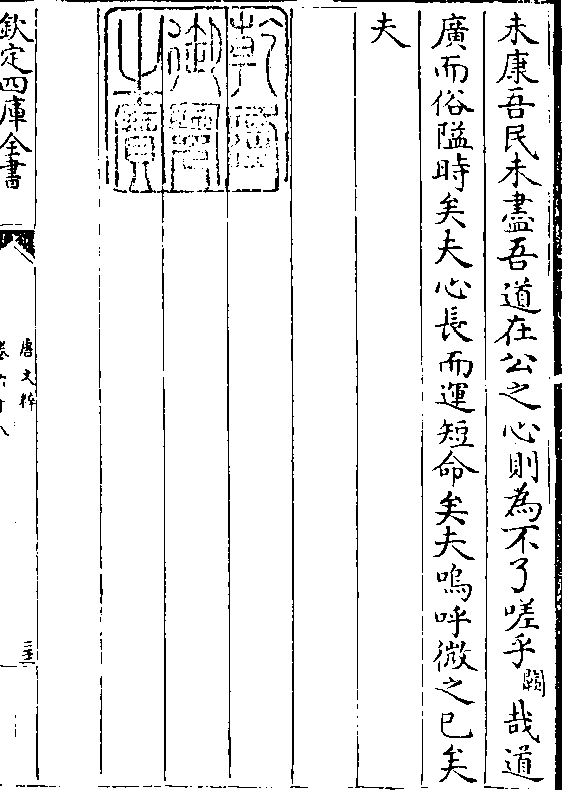 未康吾民未盡吾道在公之心則為不了嗟乎闕哉道
廣而俗隘時矣夫心長而運短命矣夫嗚呼微之已矣
夫
乾隆御覽之寶
欽定四庫全書
唐文粹
卷六十八